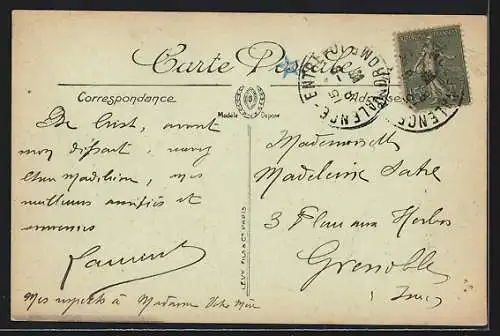 Carte Postale
Correspondance
Modèle Déposé
De Crest, avant
mon départ, recevez
chère Madeleine, mes
meilleures amitiés et
souvenirs
Laurent
Mes respects à Madame Votre Mère
LEVY FILS & Cie PARIS
Mademoiselle
Madeleine
3 Place aux Herbes
Grenoble
Isère
VALENCE
VALENCE
15